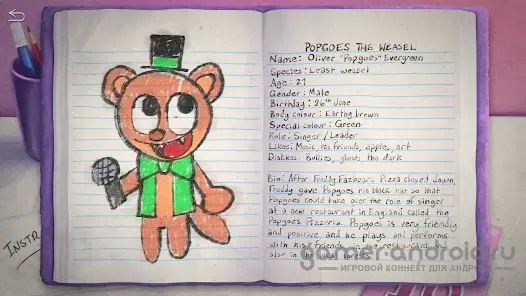 POPGOES THE WEASEL
Name: Oliver "Popgoes" Evergreen
Species: Least weasel
Age: 21
Gender: Male
Birthday: 26th June
Body colour: Earthy brown
Special colour: Green
Role: Singer/Leader
Likes: Music, his friends, apples, art
Dislikes: Bullies, ghosts, the dark
Bio: After Freddy Fazbear's Pizza closed down,
Freddy gave Popgoes his black hat so that
Popgoes could take over the role of singer
at a new restaurant in England called the
Popgoes Pizzeria. Popgoes is very friendly
and positive, and he plays and performs
with his friends in the restaurant and
also in the
INSTR
gamer-android.ru
ИГРОВОЙ КОННЕКТ ДЛЯ АНДРОИД